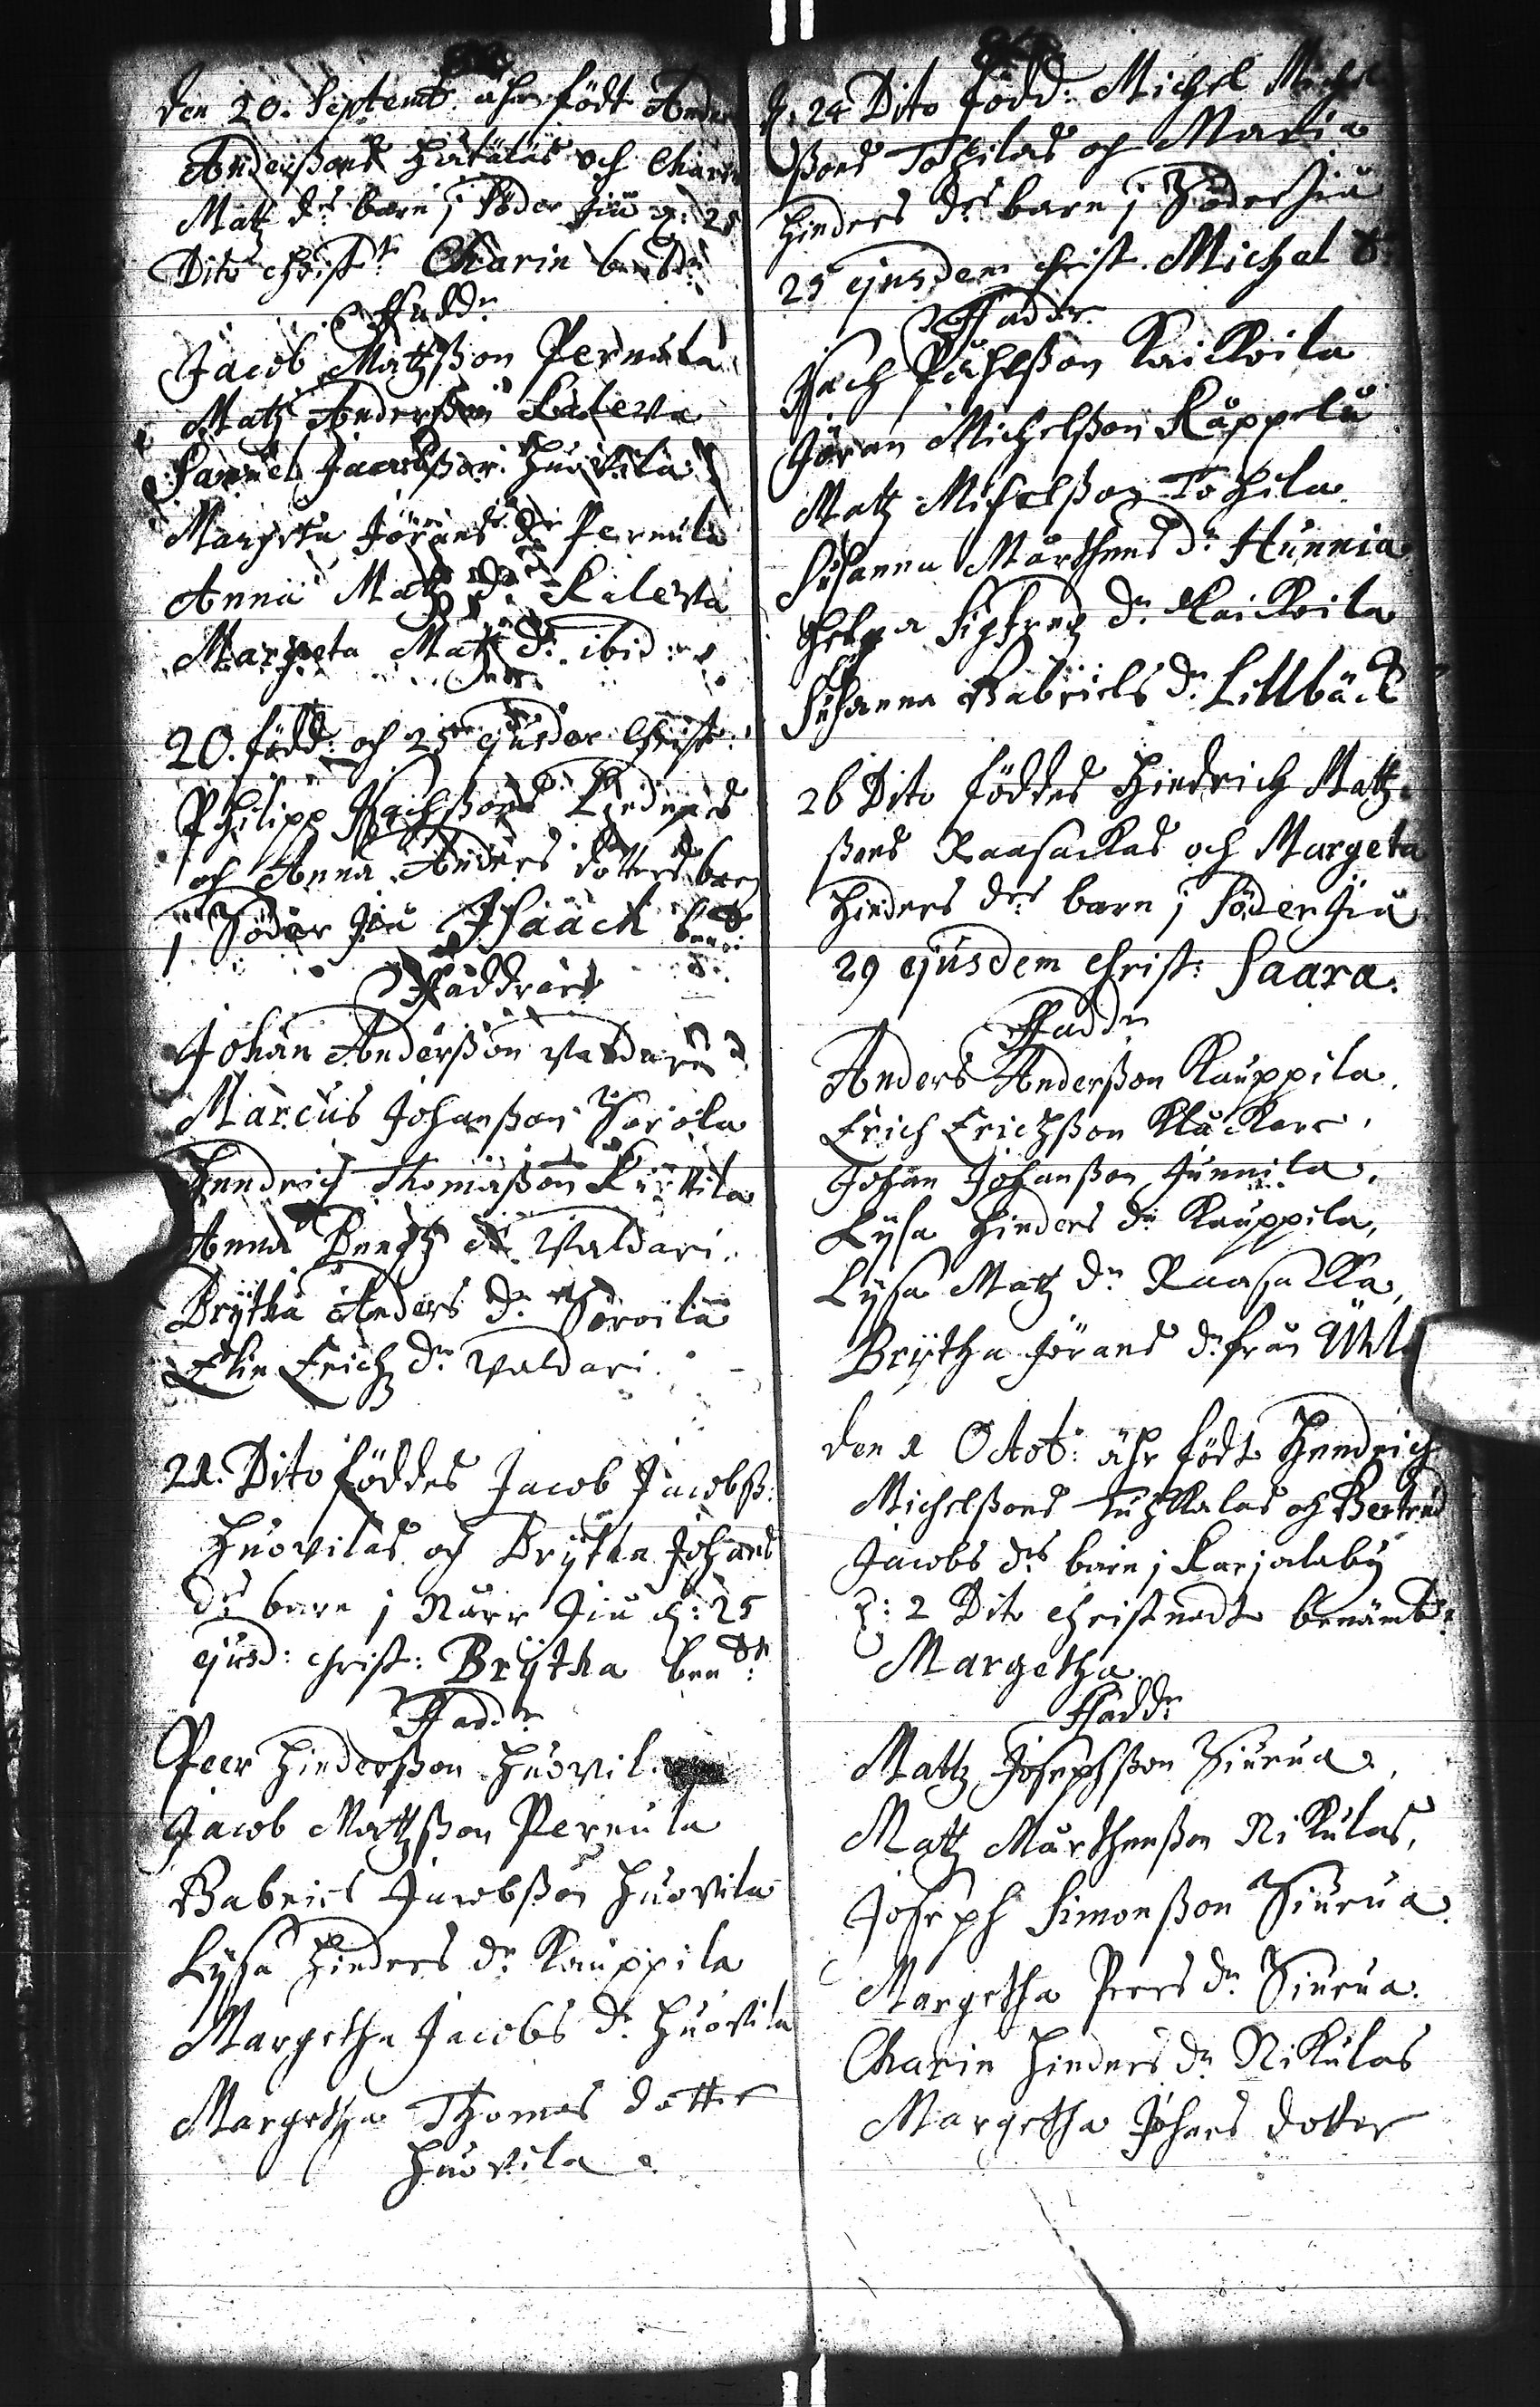 Den 20. Septemb. ähr födt Anders
Anderßons Hatalas och Charin
Matz drs barn j Söder Jiu d: 25
Dito christt Charin bendt
Faddr
Jacob Matzßon Pernula
Matz Anderßon Kaleva
Samuel Jacobßon Huovila
Margeta Jörans dr Pernula
Anna Matz dr Kaleva
Margeta Matz dr ibid:
20. född: och 25 ejusdem Christ:
Philipp Isachßons
och Anna Anders dotters barn
j Söder Jiu Isaach
Faddrar
Johan Anderßon Valdari
Marcus Johanßon Sorola
Hendrich Thomaßon Kurttila
Anna Bengtz dr Valdari.
Brÿtha Anders dr Soroila
Elin Erichz dr Valdari.
21. Dito föddes Jacob Jacobß:
Huovilas och Brÿtha Johans
drs barn j Norr Jiu d: 25
ejusd: christ: Brÿtha ben dt:
Faddr
Peer Hinderßon Huovil
Jacob Matzßon Pernula
Gabriel Jacobßon Huovila
Lÿsa Hinders dr Kauppila
Margetha Jacobs dr Huovila
Margetha Thomas dotter
Huovila
d. 24 Dito född: Michel Michel
ßons Tohilas och Maria
Hinders drs barn j Söder Jiu
25 ejusdem christ. Michel
Faddr.
Isach Påhlßon Kaikoila
Jöran Michelßon Kuppela
Matz Michelßon Tohila
Susanna Mårthens dr Hunnia
Helga Sigfredz dr Kaikoila
Susanna Gabriels dr Lillbäck
26 Dito föddes Hindrich Matz
ßons Raasackas och Margeta
Hinders drs barn j Söder Jiu
29 ejusdem christ: Saara.
Faddr
Anders Anderßon Kauppila.
Erich Erichßon Kluckare.
Johan Johanßon Junnila.
Lÿsa Hinders dr Kauppila,
Lÿsa Matz dr Raasakka,
Brÿtha Jörans dr från
Den 1 Octob: ähr födt Hendrich
Michelßons Tuhkalas och Bertrud
Jacobs drs barn j Karjalaby
d: 2 Dito christnadt benämbdt
Margetha.
Faddr
Mattz Josephßon Siurua.
Matz Mårthenßon Nikulas,
Joseph Simonßon Siurua.
Margetha Peers dr Siurua.
Charin Hinders dr Nikulas
Margetha Johans dotter